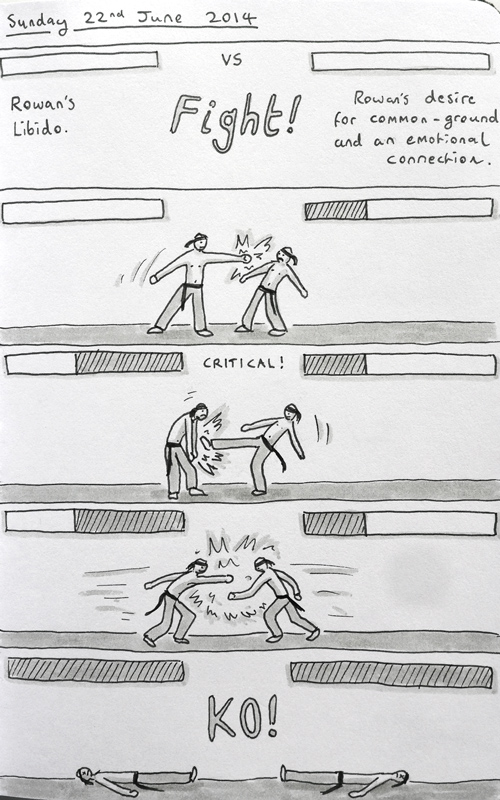 Sunday 22nd June 2014
VS
Rowan's
Libido.
Fight!
Rowan's desire
for common-ground
and an emotional
connection.
CRITICAL!
KO!